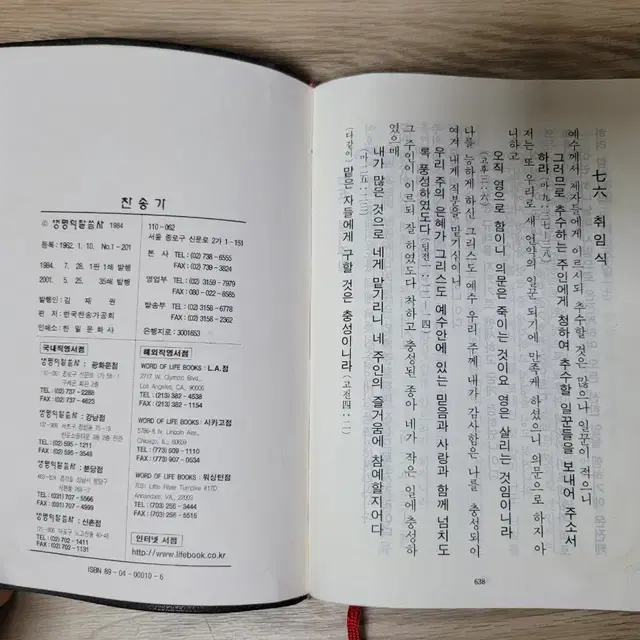 찬송가
ⓒ 생명의말씀사 1984
110-062
서울 종로구 신문로 2가 1-151
등록: 1962. 1. 10. No.1-201
본 사 TEL: (02) 738-6555
FAX: (02) 739-3824
1984. 7. 28. 1판 1쇄 발행
2001. 5. 25. 35쇄 발행
영업부 TEL: (02) 3159-7979
FAX: 080-022-8585
발행인: 김 재 권
편 저: 한국찬송가공회
인쇄소: 한 일 문 화 사
발송부 TEL: (02) 3158-6778
FAX: (02) 3158-2362
은행지로: 3001653
국내직영서점
생명의말씀사 광화문점
구세군 회관 2층
TEL: (02) 737-2288
FAX: (02) 737-4623
생명의말씀사 강남점
TEL: (02) 595-1211
FAX: (02) 595-3549
생명의말씀사 분당점
TEL: (031) 707-5566
FAX: (031) 707-4999
생명의말씀사 신촌점
TEL: (02) 702-1411
FAX: (02) 702-1131
해외직영서점
WORD OF LIFE BOOKS: L.A.점
2717 W. Olympic Blvd.,
Los Angeles, CA. 90006
TEL: (213) 382-4538
FAX: (213) 382-1154
WORD OF LIFE BOOKS: 시카고점
Chicago, IL. 60659
TEL: (773) 509-1110
FAX: (773) 907-0534
WORD OF LIFE BOOKS: 워싱턴점
7031 Little River Turnpike #17D
Annandale, VA. 22003
TEL: (703) 256-3444
FAX: (703) 256-1500
인터넷 서점
http://www.lifebook.co.kr
ISBN 89-04-00010-6
七六 취임식
예수께서 제자들에게 이르시되 추수할 것은 많으나 일꾼이 적으니
그러므로 추수하는 주인에게 청하여 추수할 일꾼들을 보내어 주소서
하라 (마 九·三七-三八)
저는 또 우리로 새 언약의 일꾼 되기에 만족케 하셨으니 의문으로 하지 아
니하고
오직 영으로 함이니 의문은 죽이는 것이요 영은 살리는 것임이니라
(고후 三·六)
나를 능하게 하신 그리스도 예수 우리 주께 내가 감사함은 나를 충성되이
여겨 내게 직분을 맡기심이니
우리 주의 은혜가 그리스도 예수 안에 있는 믿음과 사랑과 함께 넘치도
록 풍성하였도다 (딤전 一·一二-一四)
그 주인이 이르되 잘 하였도다 착하고 충성된 종아 네가 작은 일에 충성하
였으매
내가 많은 것으로 네게 맡기리니 네 주인의 즐거움에 참예할지어다
(마 二五·二三)
(다같이) 맡은 자들에게 구할 것은 충성이니라 (고전 四·二)
638